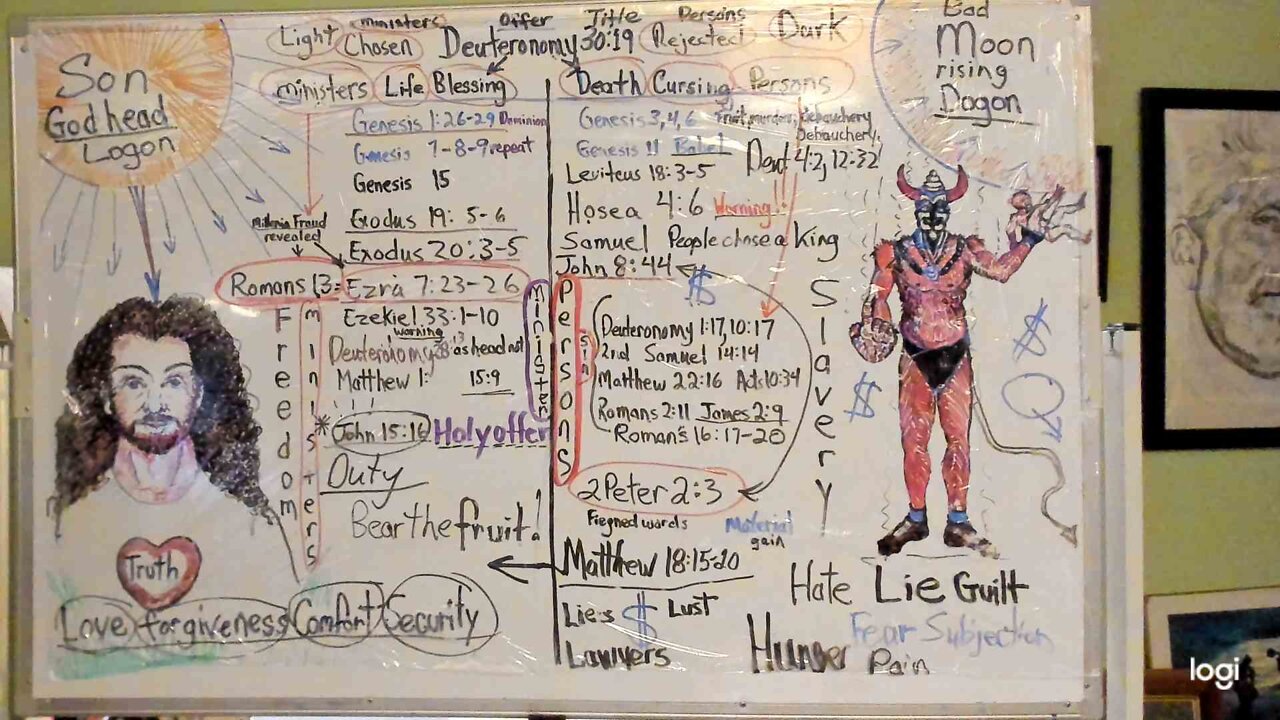 Son
Godhead
Logon
ministers Offer Title Persons
Light Chosen Deuteronomy 30:19 Rejected Dark
ministers Life Blessing
Genesis 1:26-29 Dominion
Genesis 7-8-9 repeat
Genesis 15
Millenia Fraud
revealed
Exodus 19: 5-6
Exodus 20:3-5
Romans 13= Ezra 7:23-26
Ezekiel 33:1-10
warning
Deuteronomy as head not
Matthew 1: 15:9
* John 15:16 Holy offer
Duty
Bear the fruit!
Freedom
ministers
Minister
Truth
Love forgiveness Comfort Security
Death Cursing Persons
Genesis 3,4,6 Fruit, murder, debauchery
Debauchery,
Genesis 11 Babel
Deut 4:2, 12:32
Leviteus 18:3-5
Hosea 4:6 Warning!!
Samuel People chose a King
John 8:44
$
Persons
Sin
Deuteronomy 1:17, 10:17
2nd Samuel 14:14
Matthew 22:16 Acts 10:34
Romans 2:11 James 2:9
Roman's 16:17-20
2 Peter 2:3
Fiegned words
Material
gain
Matthew 18:15-20
Liers $ Lust
Lawyers
Slavery
Bad
Moon
rising
Dagon
$
$
Hate Lie Guilt
Fear Subjection
Hunger Pain
logi